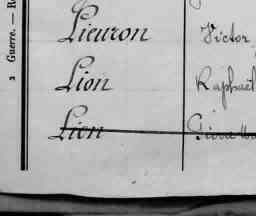 2 Guerre. — R
Lieuron Victor
Lion Raphaël
Lion Pierre